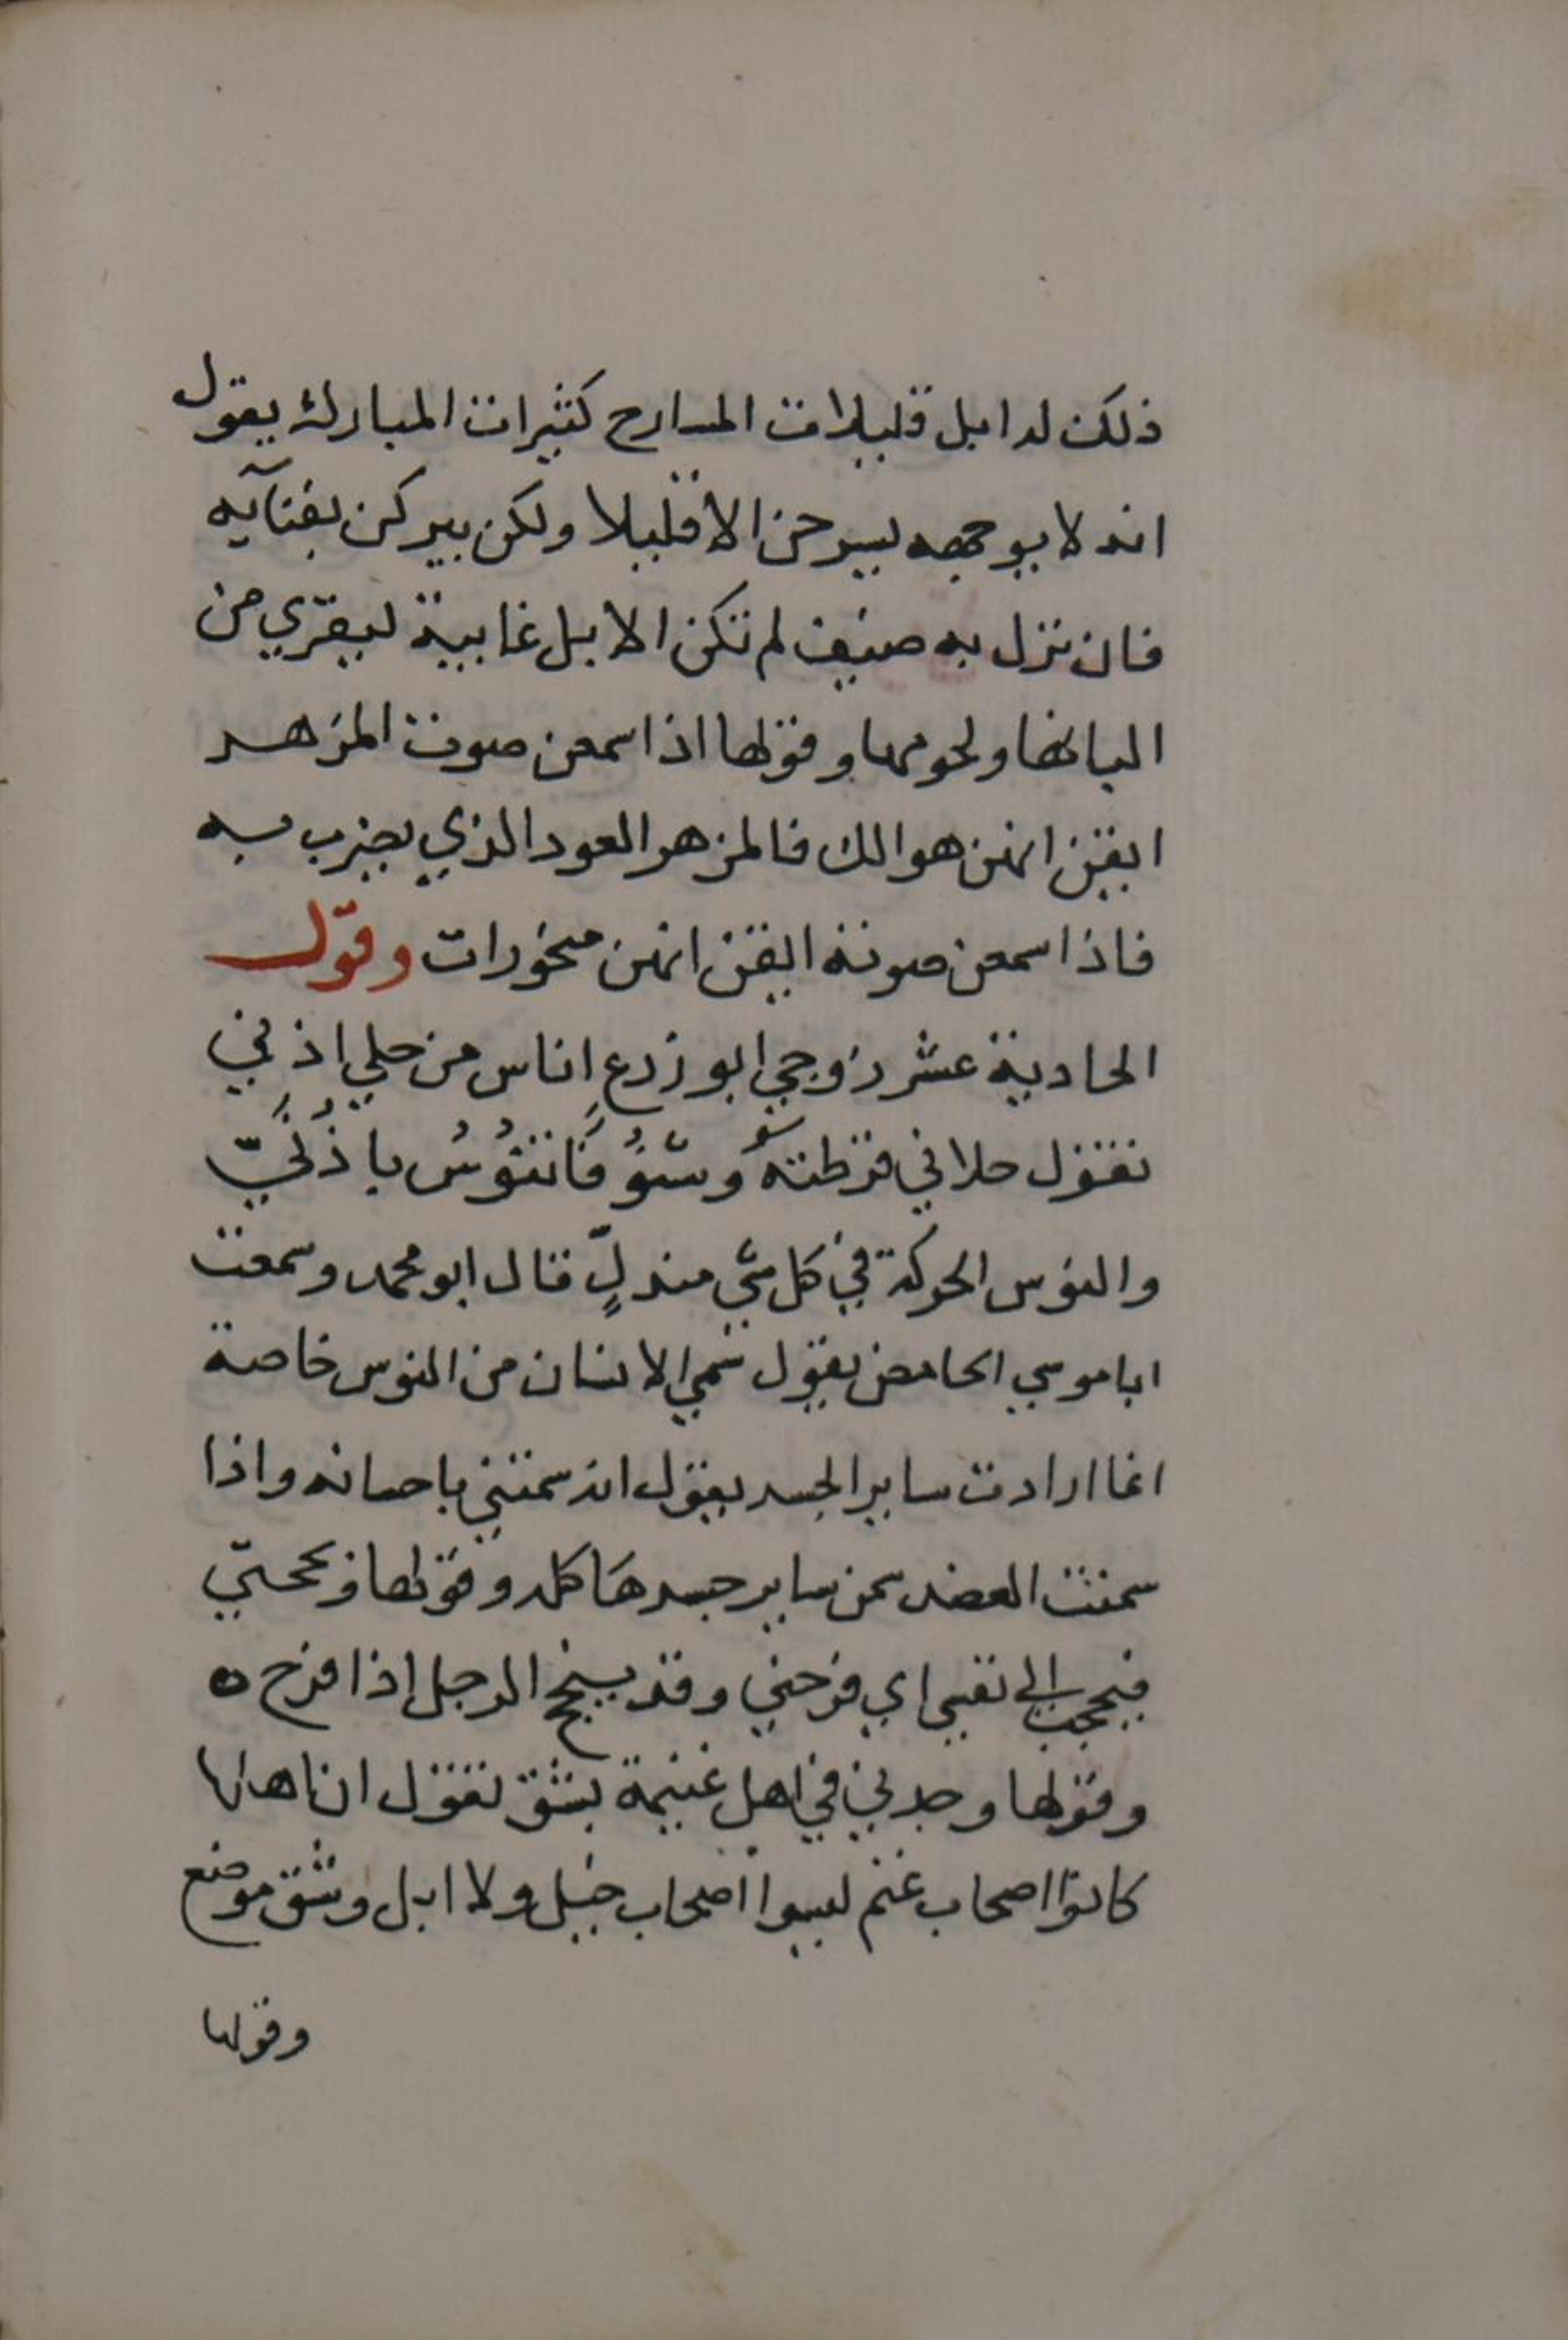 ذلك له ابل قليلات المسارح كثيرات المبارك يقول
انه لا يوجهه ليسرحن الا قليلا ولكن يبركن بفنآيه
فان نزل به ضيف لم تكن الابل غايبة ليقري من
البانها ولحومها وقولها اذا سمعن صوت المزهر
ايقن انهن هوالك فالمزهر العود الذي يضرب به
فاذا سمعن صوته ايقن انهن منحورات وقول
الحادية عشر زوجي ابو زرع اناس من حلي اذني
تقول حلاني قرطة وشنوفا تنوس باذني
والنوس الحركة في كل شي متدلٍ قال ابو محمد وسمعت
ابا موسي الحامض يقول سمي الانسان من النوس خاصة
انما ارادت ساير الجسد يقول انه سمنني باحسانه واذا
سمنت العضد سمن ساير جسدها كله وقولها وبححني
فبجحت الي نفسي اي فرحني وقد يبجح الرجل اذا فرح ه
وقولها وجدني في اهل غنيمة بشق تقول ان اهلها
كانوا اصحاب غنم ليسوا اصحاب خيل ولا ابل وشق موضع
وقولها